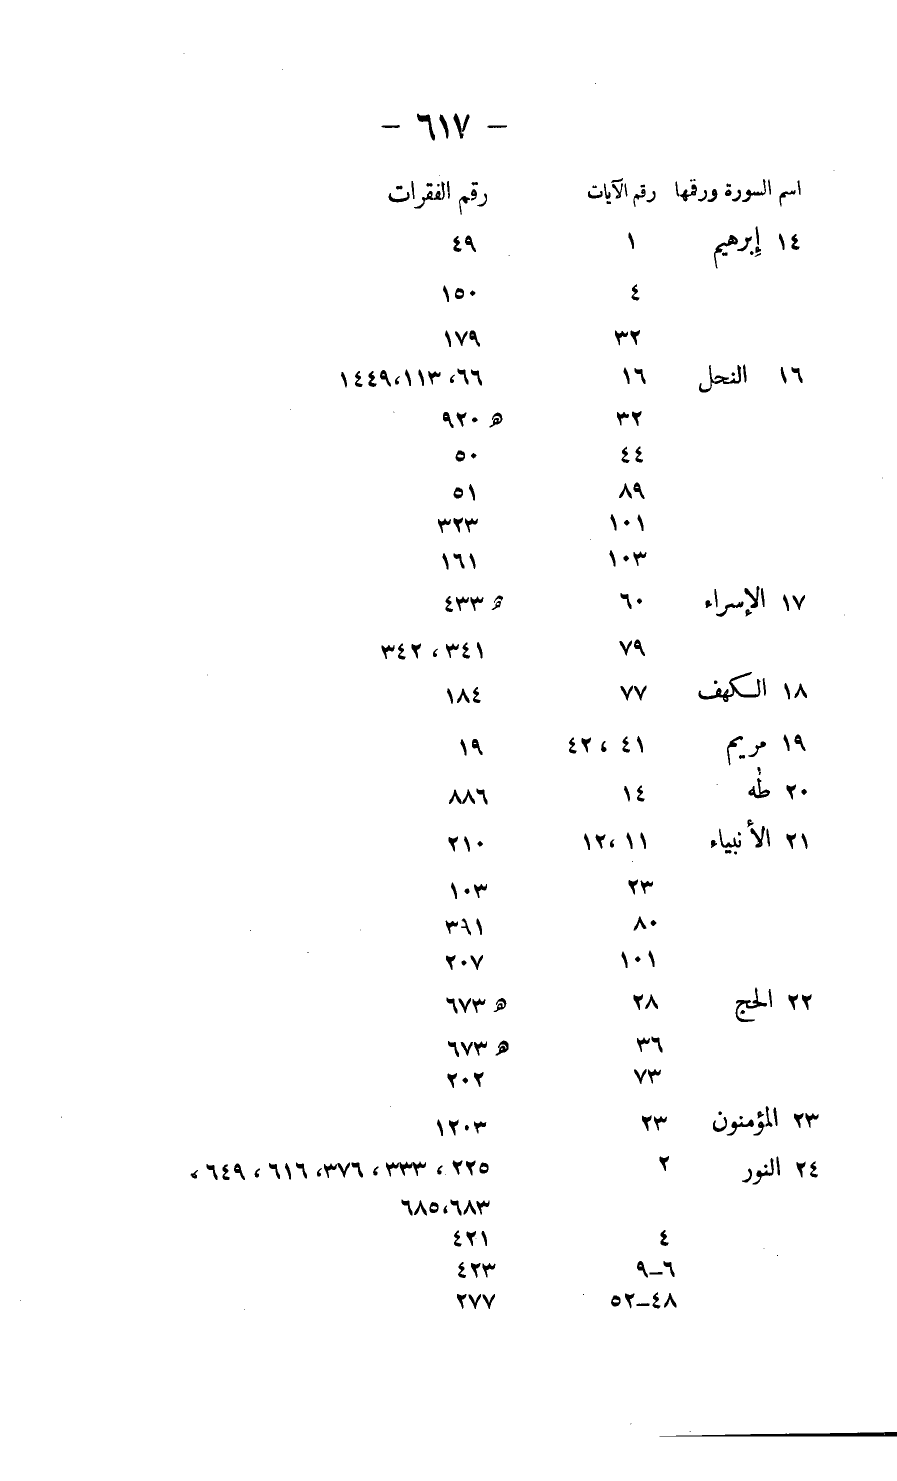 – ٦١٧ –
اسم السورة ورقمها رقم الآيات رقم الفقرات
١٤ إبرهيم ١ ٤٩
٤ ١٥٠
٣٢ ١٧٩
١٦ النحل ١٦ ٦٦، ١١٣، ١٤٤٩
٣٢ ه ٩٢٠
٤٤ ٥٠
٨٩ ٥١
١٠١ ٣٢٣
١٠٣ ١٦١
١٧ الإسراء ٦٠ ه ٤٣٣
٧٩ ٣٤١ ، ٣٤٢
١٨ الكهف ٧٧ ١٨٤
١٩ مريم ٤١ ، ٤٢ ١٩
٢٠ طٰه ١٤ ٨٨٦
٢١ الأنبياء ١١ ،١٢ ٢١٠
٢٣ ١٠٣
٨٠ ٣٩١
١٠١ ٢٠٧
٢٢ الحج ٢٨ ه ٦٧٣
٣٦ ه ٦٧٣
٧٣ ٢٠٢
٢٣ المؤمنون ٢٣ ١٢٠٣
٢٤ النور ٢ ٢٢٥ ، ٣٣٣ ، ٣٧٦، ٦١٦ ، ٦٤٩ ،
٦٨٣،٦٨٥
٤ ٤٢١
٦–٩ ٤٢٣
٤٨–٥٢ ٢٧٧